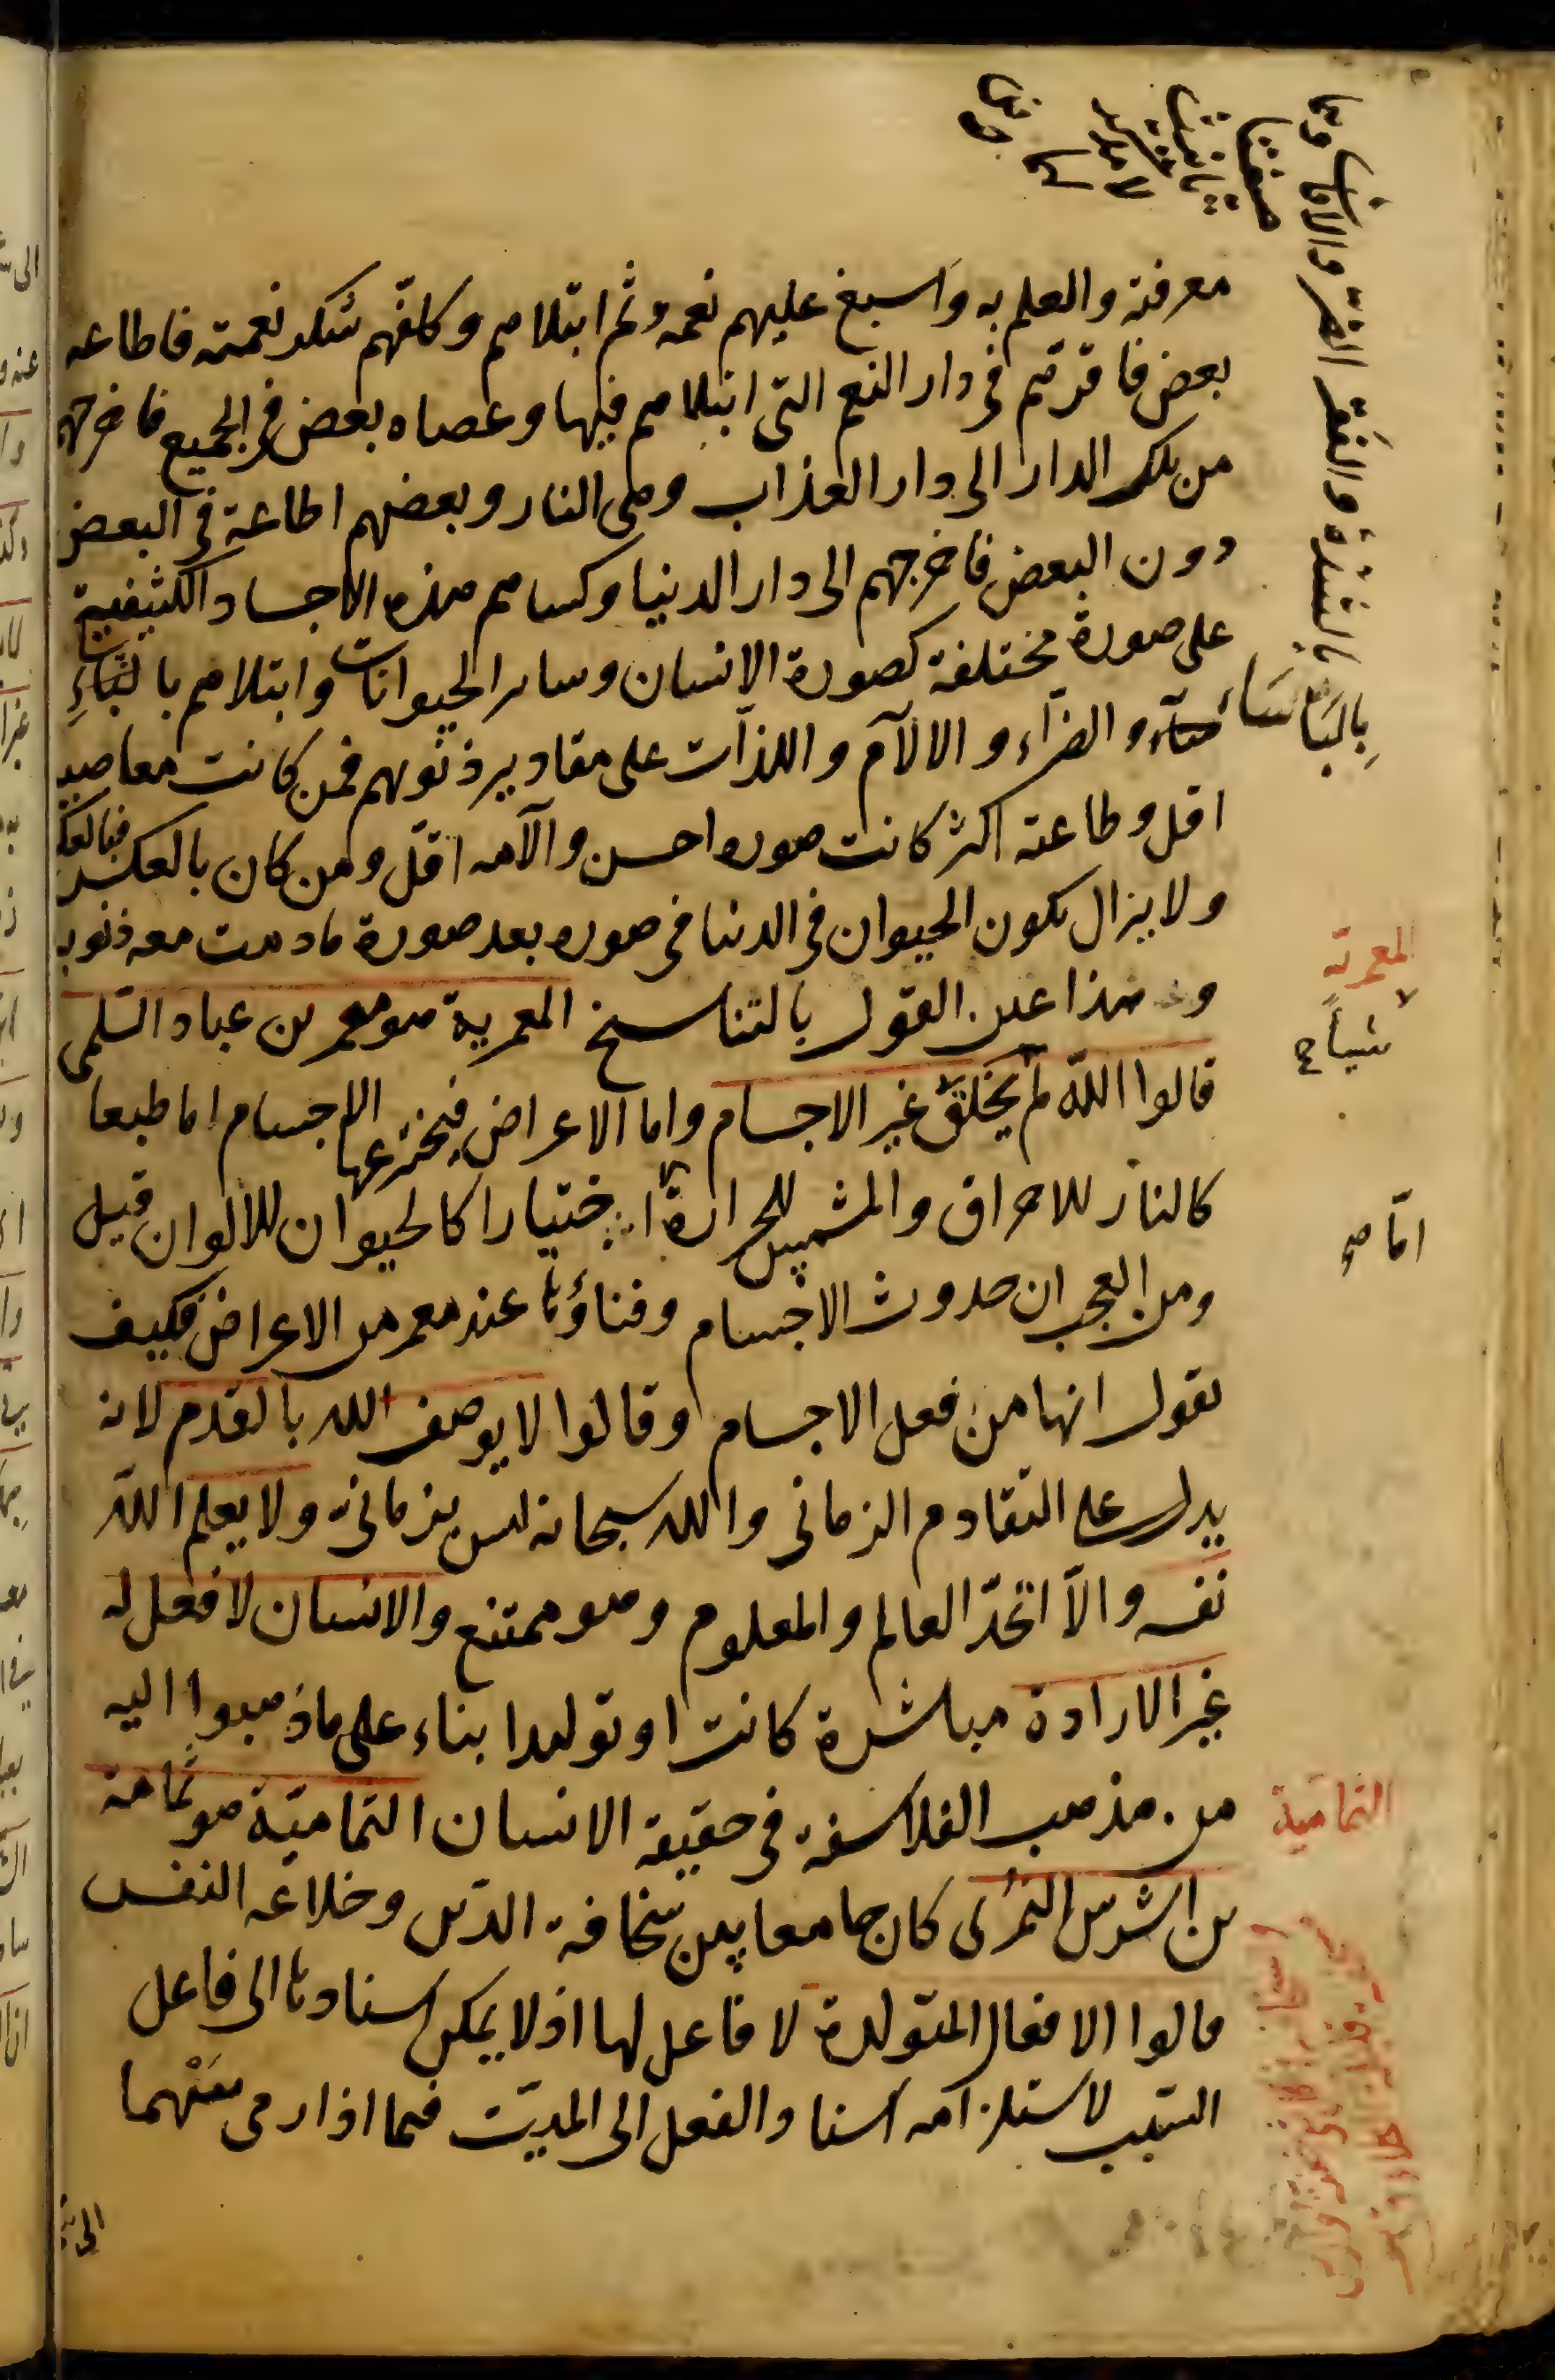 معرفته والعلم به واسبغ عليهم نعمه ثم ابتلاهم وكلفهم شكر نعمته فاطاعه
بعض فاقرهم فى دار النعم التى ابتلاهم فيها وعصاه بعض فى الجميع فاخرجهم
من تلك الدار الى دار العذاب وهى النار وبعضهم اطاعه فى البعض
دون البعض فاخرجهم الى دار الدنيا وكساهم هذه الاجساد الكثيفية
على صورة مختلفة كصورة الانسان وساير الحيوانات وابتلاهم بالبأساء
والضراء والالآم واللذات على مقادير ذنوبهم فمن كانت معاصيه
اقل وطاعته اكثر كانت صوره احسن والآمه اقل ومن كان بالعكس فبالعكس
ولا يزال يكون الحيوان فى الدنيا فى صوره بعد صورة مادمت معه ذنوبه
وهذا عين القول بالتناسخ المعمرية هو معمر بن عباد السلمى
قالوا الله لم يخلق غير الاجسام واما الاعراض فيخترعها الاجسام اما طبعا
كالنار للاحراق والشمس للحرارة اختيارا كالحيوان للالوان قيل
ومن العجب ان حدوث الاجسام وفناؤها عند معمر من الاعراض فكيف
يقول انها من فعل الاجسام وقالوا لا يوصف الله بالقدم لانه
يدل على التقادم الزمانى والله سبحانه ليس بزمانى ولا يعلم الله
نفسه والا اتحد العالم والمعلوم وهو ممتنع والانسان لا فعل له
غير الارادة مباشرة كانت او توليدا بناء على ما ذهبوا اليه
من مذهب الفلاسفة فى حقيقة الانسان الثمامية هو ثمامة
بن اشرس النمرى كان جامعا بين سخافة الدين وخلاعة النفس
قالوا الافعال المتولدة لا فاعل لها اذ لا يمكن اسنادها الى فاعل
السبب لاستلزامه اسناد الفعل الى الميت فيما اذا رمى سهما
المعمرية
شيأ
اما صح
الثمامية